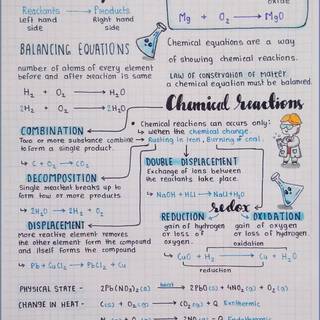 Reactants → Products
Left hand side Right hand side
oxide
Mg + O₂ → MgO
BALANCING EQUATIONS
number of atoms of every element
before and after reaction is same
H₂ + O₂ → H₂O
2H₂ + O₂ → 2H₂O
Chemical equations are a way
of showing chemical reactions.
LAW OF CONSERVATION OF MATTER
a chemical equation must be balanced.
Chemical reactions
• Chemical reactions can occurs only:
↳ when the chemical change
Rusting in Iron, Burning of coal.
COMBINATION
Two or more substance combine
to form a single product.
↳ C + O₂ → CO₂
DECOMPOSITION
Single reactant breaks up to
form tow or more products
↳ 2H₂O → 2H₂ + O₂
DISPLACEMENT
More reactive element removes
the other element form the compound
and itself forms the compound
↳ Pb + CuCl₂ → PbCl₂ + Cu
DOUBLE DISPLACEMENT
Exchange of ions between
the reactants take place.
↳ NaOH + HCl → NaCl + H₂O
redox
REDUCTION
gain of hydrogen
or loss of
oxygen.
OXIDATION
gain of oxygen
or loss of hydrogen.
oxidation
CuO + H₂ → Cu + H₂O
reduction
PHYSICAL STATE - 2Pb(NO₃)₂(s) heat → 2PbO(s) + 4NO₂(g) + O₂(g)
CHANGE IN HEAT - C(s) + O₂(g) → CO₂(g) + Q Exothermic